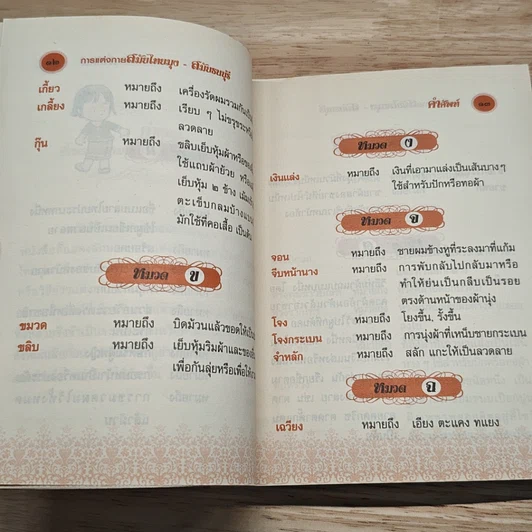 ๑๒ การแต่งกายสมัยไทยมุง - สมัยธนบุรี
เกี้ยว หมายถึง เครื่องรัดผมรวมกันเป็น
เกลี้ยง หมายถึง เรียบ ๆ ไม่ขรุขระ
ลวดลาย
กุ๊น หมายถึง ขลิบเย็บหุ้มผ้าหรือของ
ใช้แถบผ้าย้วย
เย็บหุ้ม ๒ ข้าง
ตะเข็บกลมบ้างแบน
มักใช้ที่คอเสื้อ เป็นต้น
หมวด ข
ขมวด หมายถึง บิดม้วนแล้วขอดให้เป็น
ขลิบ หมายถึง เย็บหุ้มริมผ้าและของ
เพื่อกันลุ่ยหรือเพื่อให้
คำศัพท์ ๑๓
หมวด ง
เงินแล่ง หมายถึง เงินที่เอามาแล่งเป็นเส้นบางๆ
ใช้สำหรับปักหรือทอผ้า
หมวด จ
จอน หมายถึง ชายผมข้างหูที่ระลงมาที่แก้ม
จีบหน้านาง หมายถึง การพับกลับไปกลับมาหรือ
ทำให้ย่นเป็นกลีบเป็นรอย
ตรงด้านหน้าของผ้านุ่ง
โจง หมายถึง โยงขึ้น, รั้งขึ้น
โจงกระเบน หมายถึง การนุ่งผ้าที่เหน็บชายกระเบน
จำหลัก หมายถึง สลัก แกะให้เป็นลวดลาย
หมวด ฉ
เฉวียง หมายถึง เอียง ตะแคง ทแยง